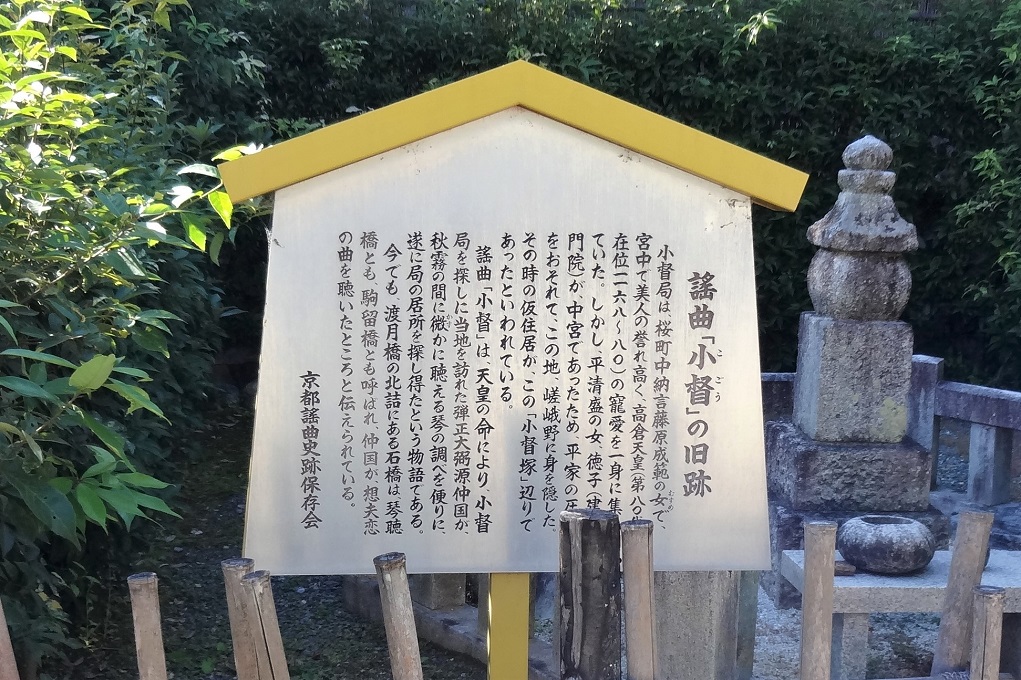 謡曲「小督」の旧跡
こごう
小督局は、桜町中納言藤原成範の女で、
むすめ
宮中で美人の誉れ高く、高倉天皇（第八〇
在位一一六八～八〇）の寵愛を一身に集
ていた。しかし、平清盛の女、徳子（建
門院）が、中宮であったため、平家の圧
をおそれて、この地、嵯峨野に身を隠した。
その時の仮住居が、この「小督塚」辺りで
あったといわれている。
謡曲「小督」は、天皇の命により、小督
局を探しに当地を訪れた弾正大弼源仲国が、
秋霧の間に微かに聴える琴の調べを便りに、
かす
遂に局の居所を探し得たという物語である。
今でも、渡月橋の北詰にある石橋は、琴聴
橋とも、駒留橋とも呼ばれ、仲国が、想夫恋
の曲を聴いたところと伝えられている。
京都謡曲史跡保存会